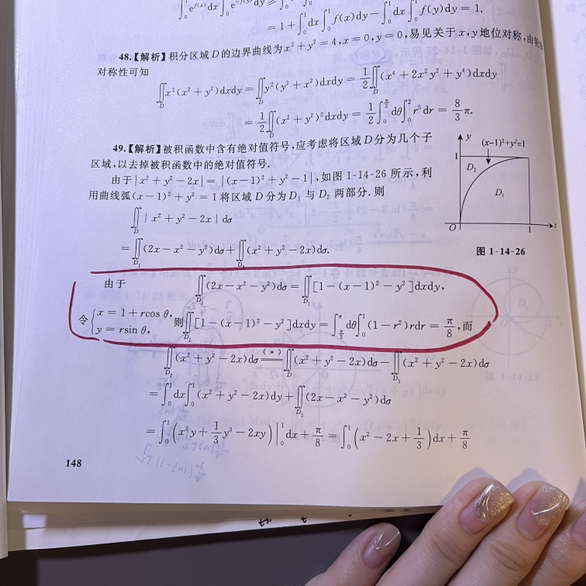 =1+∫₀¹dx∫₀¹f(x)dy-∫₀¹dx∫₀¹f(y)dy=1.
48.【解析】积分区域D的边界曲线为x²+y²=4,x=0,y=0,易见关于x,y地位对称,由
对称性可知
∬_D x²(x²+y²)dxdy=∬_D y²(y²+x²)dxdy=1/2∬_D(x⁴+2x²y²+y⁴)dxdy
=1/2∬_D(x²+y²)²dxdy=1/2∫₀^{π/2}dθ∫₀²r⁵dr=8/3π.
49.【解析】被积函数中含有绝对值符号,应考虑将区域D分为几个子
区域,以去掉被积函数中的绝对值符号.
由于|x²+y²-2x|=|(x-1)²+y²-1|,如图1-14-26所示,利
用曲线弧(x-1)²+y²=1将区域D分为D₁与D₂两部分.则
∬_D|x²+y²-2x|dσ
=∬_{D₁}(2x-x²-y²)dσ+∬_{D₂}(x²+y²-2x)dσ.
y
(x-1)²+y²=1
1
D₂
D₁
O
1
x
图1-14-26
由于
∬_{D₁}(2x-x²-y²)dσ=∬_{D₁}[1-(x-1)²-y²]dxdy,
令{x=1+rcosθ, y=rsinθ, 则∬_{D₁}[1-(x-1)²-y²]dxdy=∫_{π/2}^π dθ∫₀¹(1-r²)rdr=π/8,而
∬_{D₂}(x²+y²-2x)dσ=(*)=∬_D(x²+y²-2x)dσ-∬_{D₁}(x²+y²-2x)dσ
=∫₀¹dx∫₀¹(x²+y²-2x)dy+∬_{D₁}(2x-x²-y²)dσ
=∫₀¹(x²y+1/3y³-2xy)|₀¹dx+π/8=∫₀¹(x²-2x+1/3)dx+π/8
148